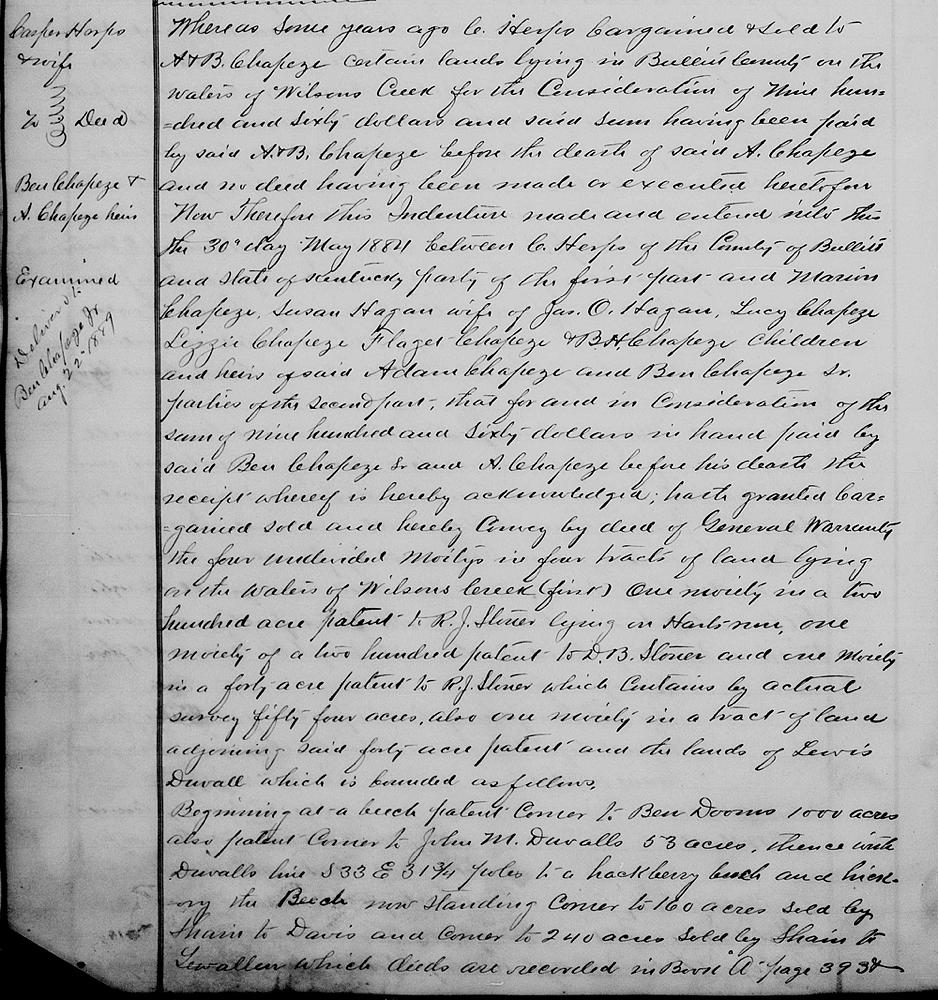 Casper Herps
& wife
To Deed
Ben Chapeze &
A. Chapeze heirs
Examined
Delivered to
Ben Chapeze Jr
Aug. 22nd 1889
Whereas some years ago C. Herps bargained & sold to
A & B. Chapeze certain lands lying in Bullitt County on the
waters of Wilsons Creek for the Consideration of Nine hun=
=dred and Sixty dollars and said sum having been paid
by said A. & B. Chapeze before the death of said A. Chapeze
and no deed having been made or executed heretofore
Now Therefore this Indenture made and entered into this
the 30" day May 1884 between C. Herps of the County of Bullitt
and state of Kentucky party of the first part and Marion
Chapeze, Susan Hagan wife of Jas. O. Hagan, Lucy Chapeze
Lizzie Chapeze Flaget Chapeze & B.H. Chapeze Children
and heirs of said Adam Chapeze and Ben Chapeze Sr.
parties of the second part, that for and in Consideration of the
sum of nine hundred and sixty dollars in hand paid by
said Ben Chapeze Sr and A. Chapeze before his death the
receipt whereof is hereby acknowledged; hath granted bar=
=gained sold and hereby Convey by deed of General Warranty
the four undivided Moitys in four tracts of land lying
on the waters of Wilsons Creek (first) One moiety in a two
hundred acre patent to R. J. Stoner lying on Harts run, one
moiety of a two hundred patent to D. B. Stoner and one moiety
in a forty acre patent to R. J. Stoner which Contains by actual
survey fifty four acres, also one moiety in a tract of land
adjoining said forty acre patent and the lands of Lewis
Duvall which is bounded as follows.
Beginning at a beech patent Corner to Ben Dooms 1000 acres
also patent Corner to John M. Duvalls 53 acres, thence with
Duvalls line S 33 E 31 3/4 poles to a hackberry beech and hick-
-ory the Beech now standing Corner to 160 acres sold by
Shain to Davis and Corner to 240 acres sold by Shain to
Lewallen which deeds are recorded in Book "A" page 393 &